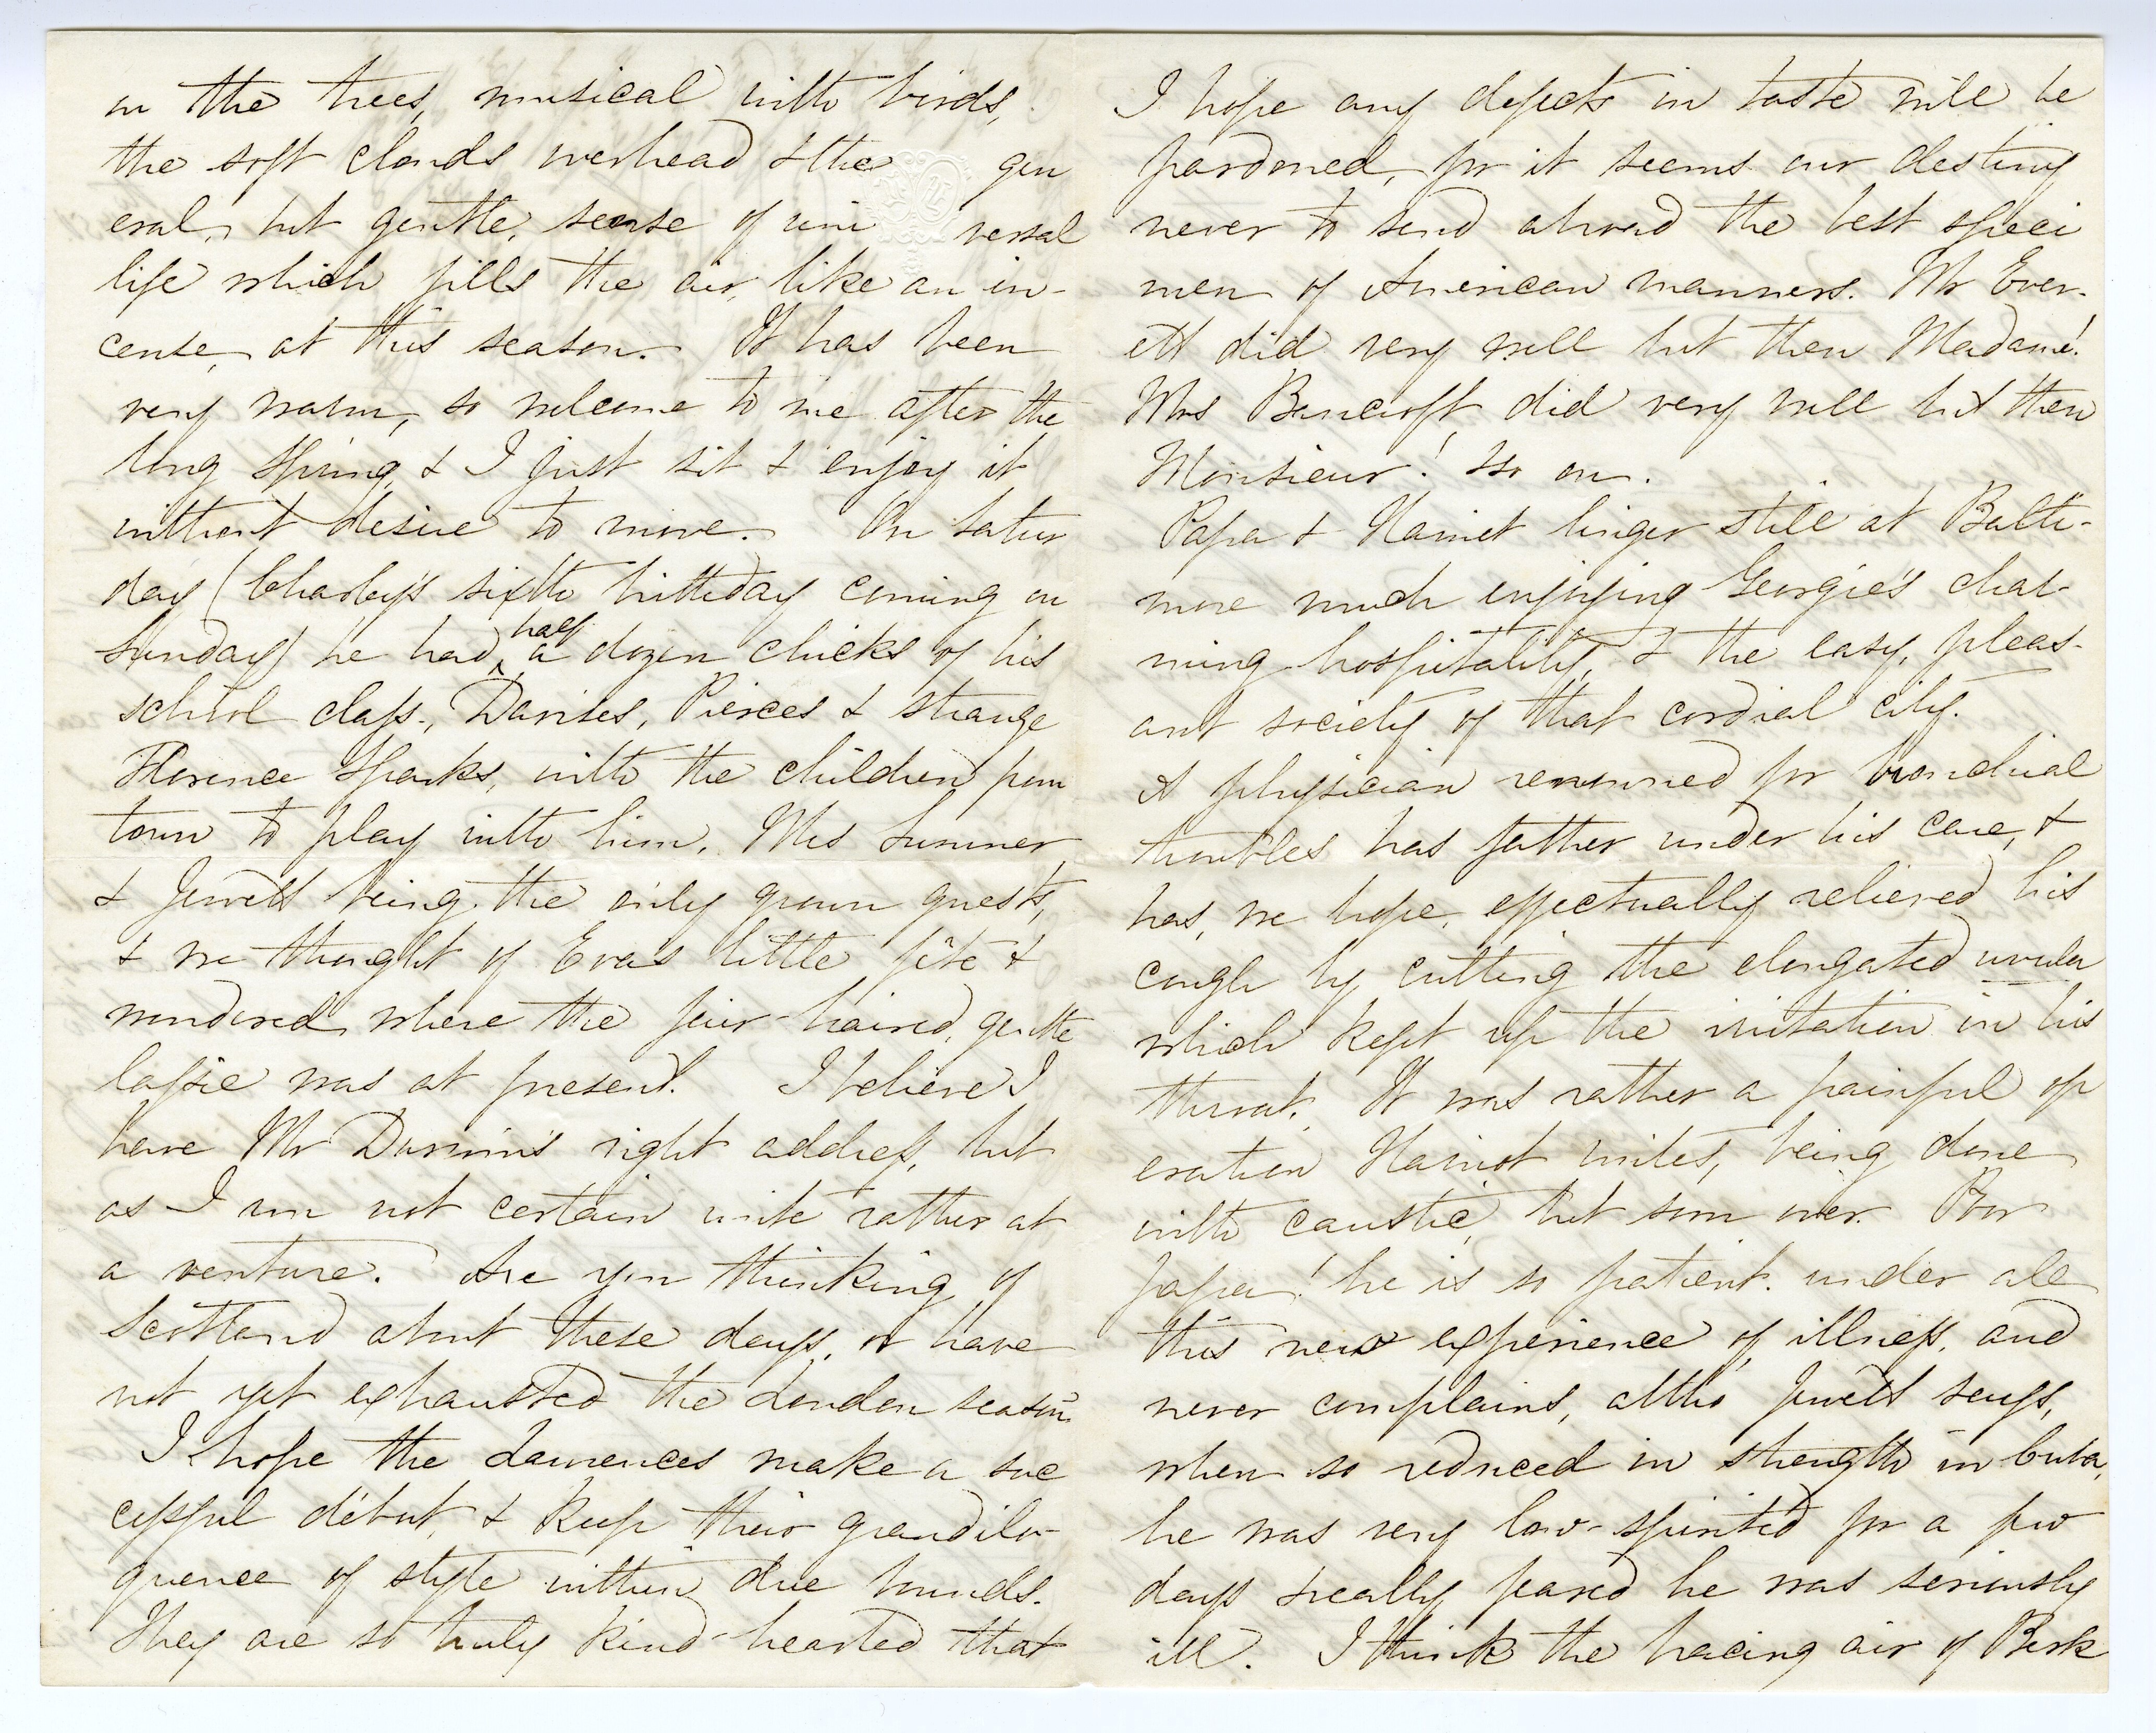 in the trees, musical with birds,
the soft clouds overhead & the gen
eral, but gentle, sense of uni versal
life which fills the air, like an in-
cense, at this season. It has been
very warm, so welcome to me after the
long spring, & I just sit & enjoy it
without desire to move. On Satur
day (Charley's sixth birthday coming on
Sunday) he had half a dozen chicks of his
school class, Davises, Pierces & strange
Florence Sparks, with the children from
town to play with him. Mrs Sumner
& Jewett being the only grown guests,
& we thought of Eva's little fête &
wondered where the fair-haired, gentle
lassie was at present. I believe I
have Mr Darwin's right address, but
as I am not certain write rather at
a venture. Are you thinking of
Scotland about these days, or have
not yet exhausted the London season
I hope the Lawrences make a suc
cessful début, & keep their grandilo-
quence of style within due bounds.
They are so truly kind-hearted that
I hope any defects in taste will be
pardoned, for it seems our destiny
never to send abroad the best speci
men of American manners. Mr Ever-
ett did very well but then Madame!
Mrs Bancroft did very well but then
Monsieur! & so on.
Papa & Harriet linger still at Balti-
more much enjoying Georgie's char-
ming hospitality, & the easy, pleas-
ant society of that cordial city.
A physician renowned for bronchial
troubles has father under his care, &
has, we hope, effectually relieved his
cough by cutting the elongated uvula
which kept up the irritation in his
throat. It was rather a painful op
eration Harriot writes, being done
with caustic, but soon over. Poor
papa! he is so patient under all
this new experience of illness, and
never complains, altho' Jewett says,
when so reduced in strength in Cuba,
he was very low-spirited for a few
days & really feared he was seriously
ill. I think the bracing air of Berk